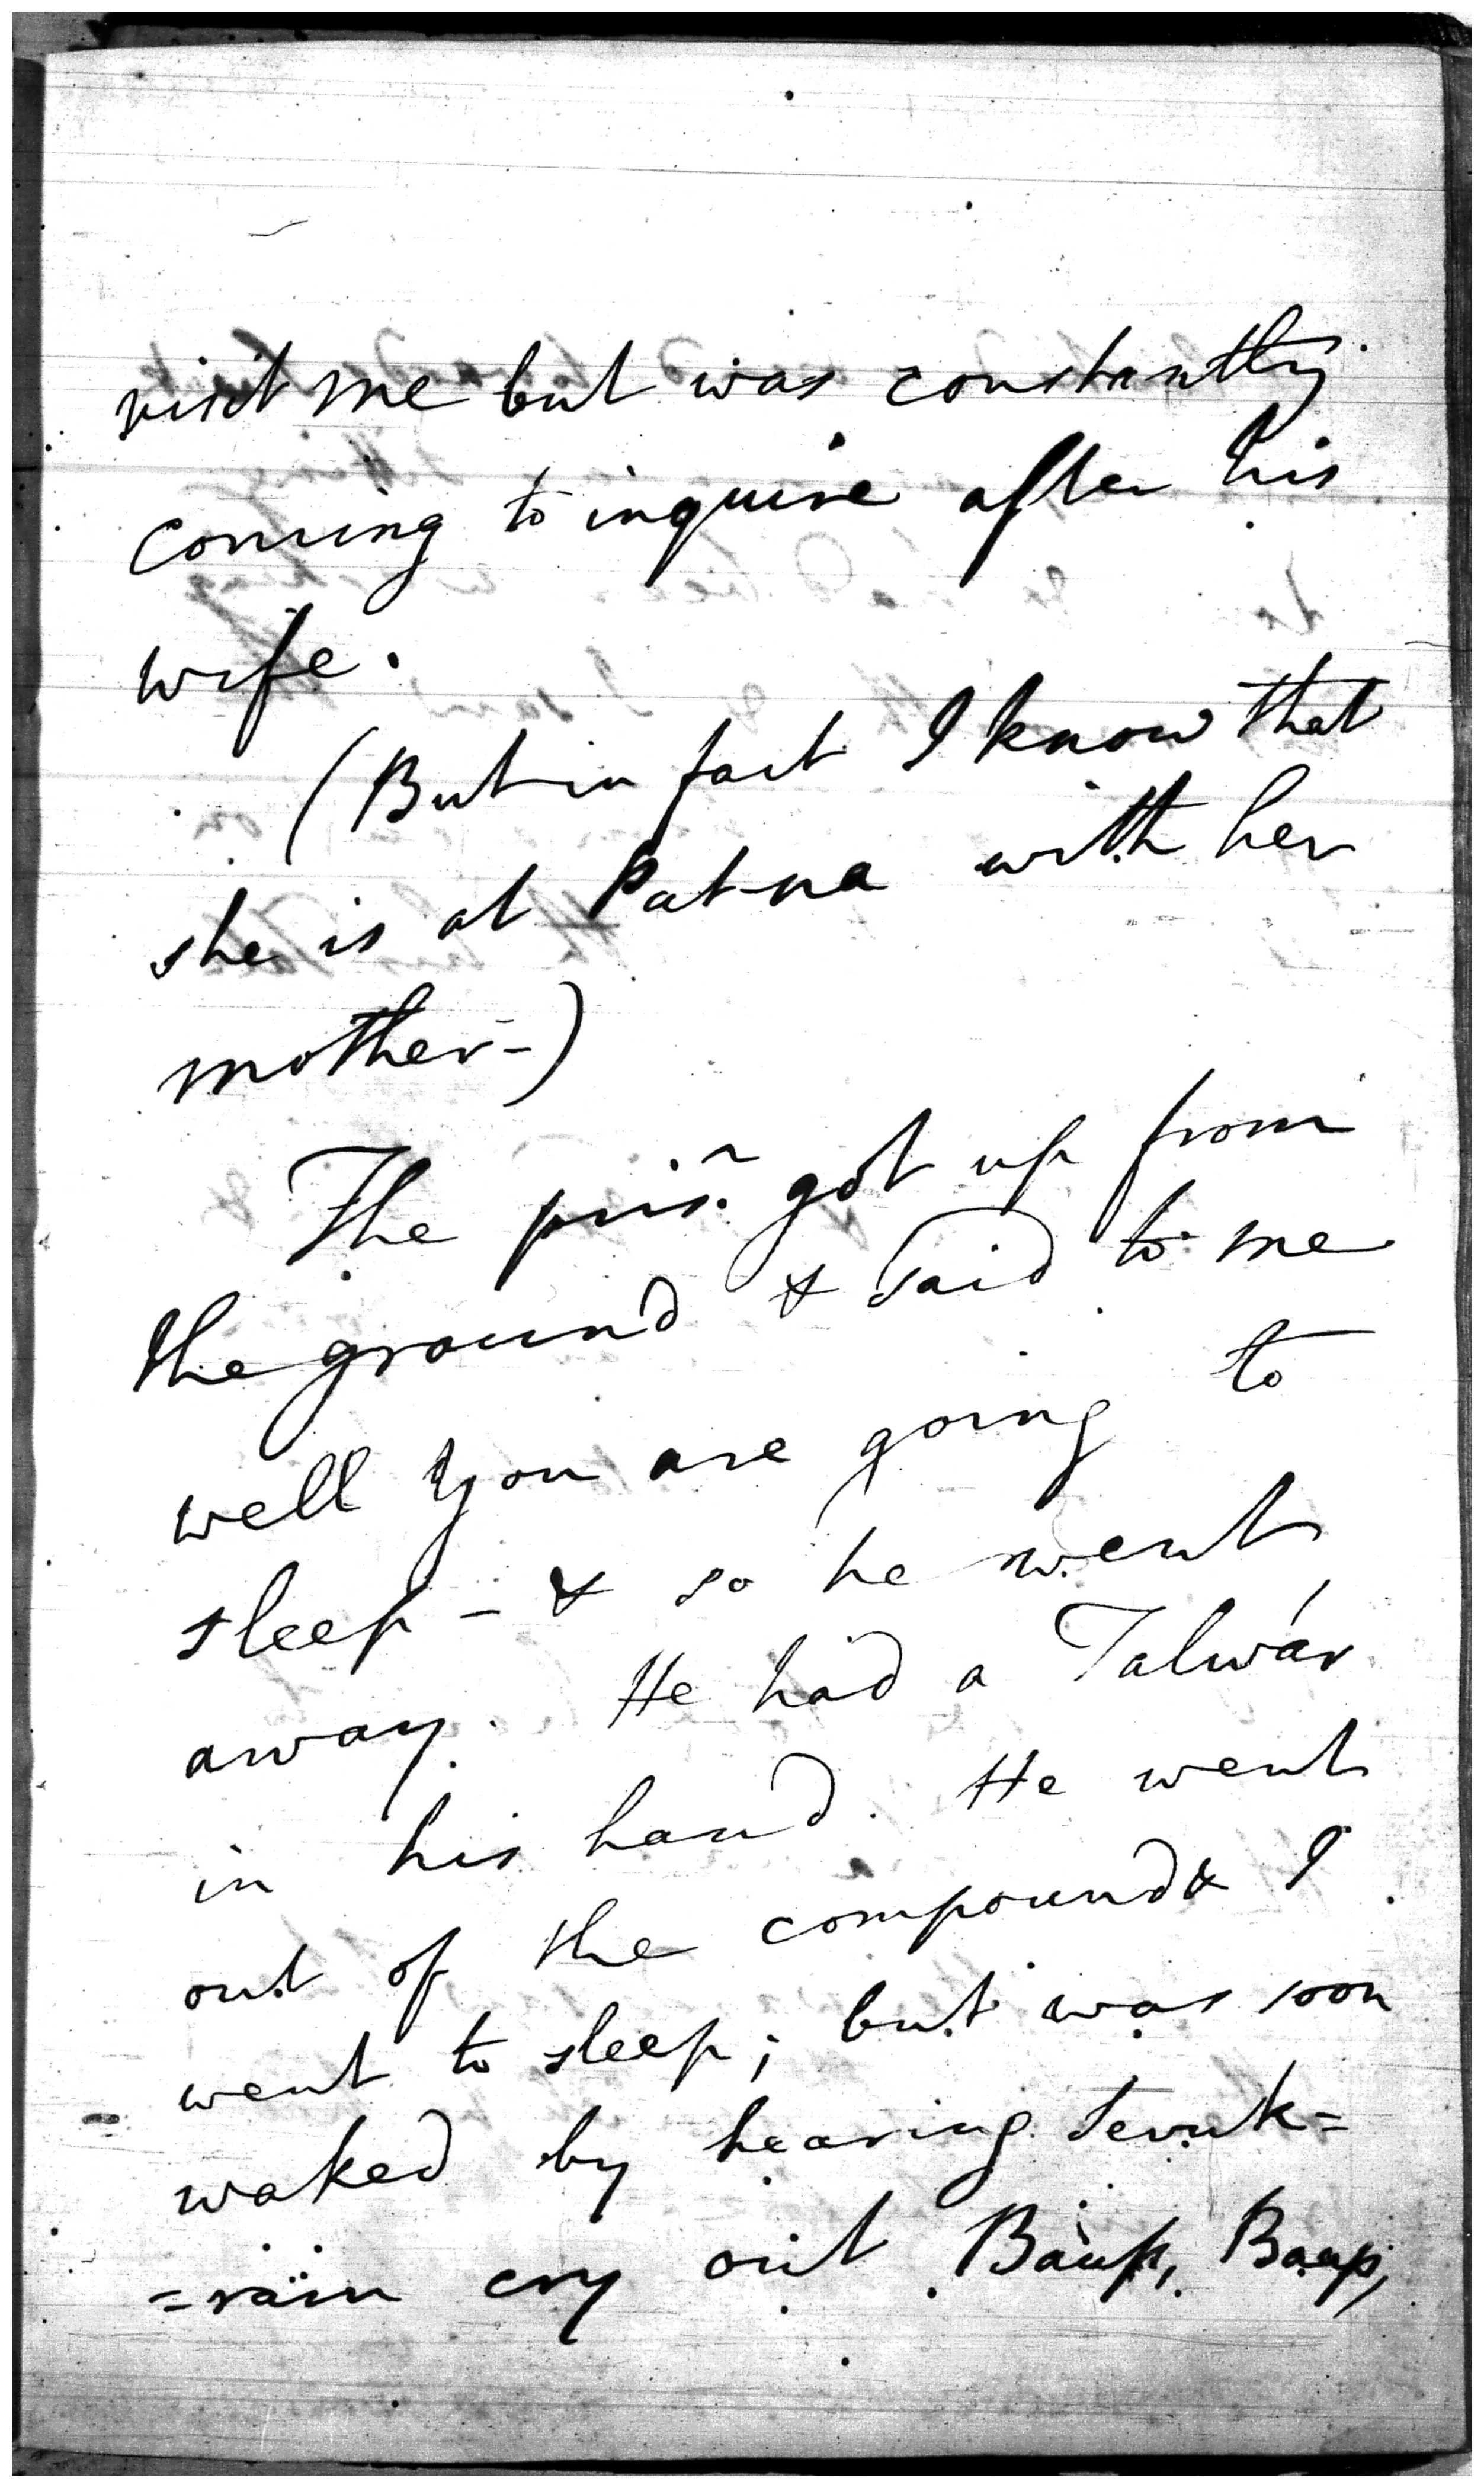 visit me but was constantly
coming to inquire after his
wife.
(But in fact I know that
she is at Patna with her
mother-)
The prisr. got up from
the ground & said to me
well you are going to
sleep - & so he went
away. He had a Talwár
in his hand. He went
out of the compound & I
went to sleep; but was soon
waked by hearing Sevuk=
=räm cry out Baup, Baup,